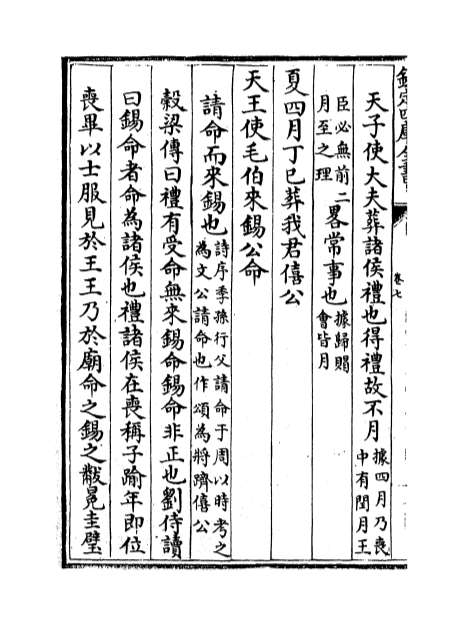 欽定四庫全書
卷七
天子使大夫葬諸侯禮也得禮故不月據四月乃喪
中有閏月王
臣必無前二
月至之理
畧常事也據歸賵
會皆月
夏四月丁巳葬我君僖公
天王使毛伯來錫公命
請命而來錫也詩序季孫行父請命于周以時考之
為文公請命也作頌為將躋僖公
榖梁傳曰禮有受命無來錫命錫命非正也劉侍讀
曰錫命者命為諸侯也禮諸侯在喪稱子踰年即位
喪畢以士服見於王王乃於廟命之錫之黻冕圭璧